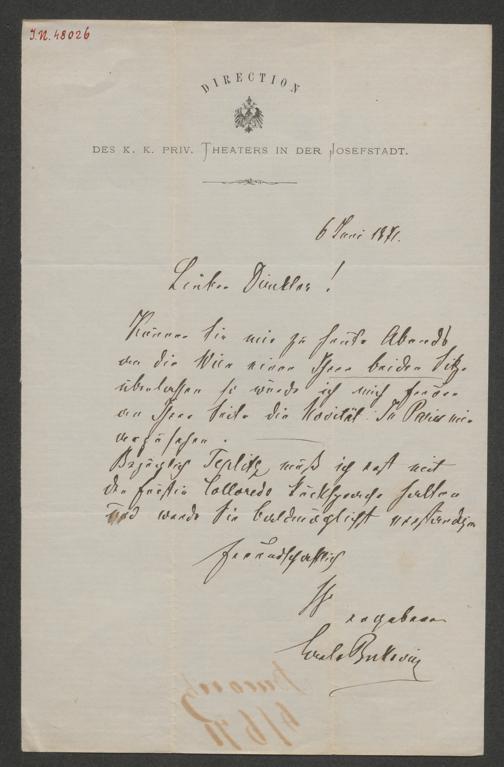 I.N. 48026
DIRECTION
DES K. K. PRIV. THEATERS IN DER JOSEFSTADT.
6 Juni 1871.
Lieber Direktor!
Können Sie mir zu heute Abends
an die Wien einen Ihrer beiden Sitze
überlassen so würde ich mich freuen
an Ihrer Seite die Novität In Paris mir
anzusehen.
Bezüglich Teplitz muß ich erst mit
der Fürstin Colloredo Rücksprache halten
und werde Sie baldmöglichst verständigen
freundschaftlich
Ihr
ergebener
Bukovics
6/6 71